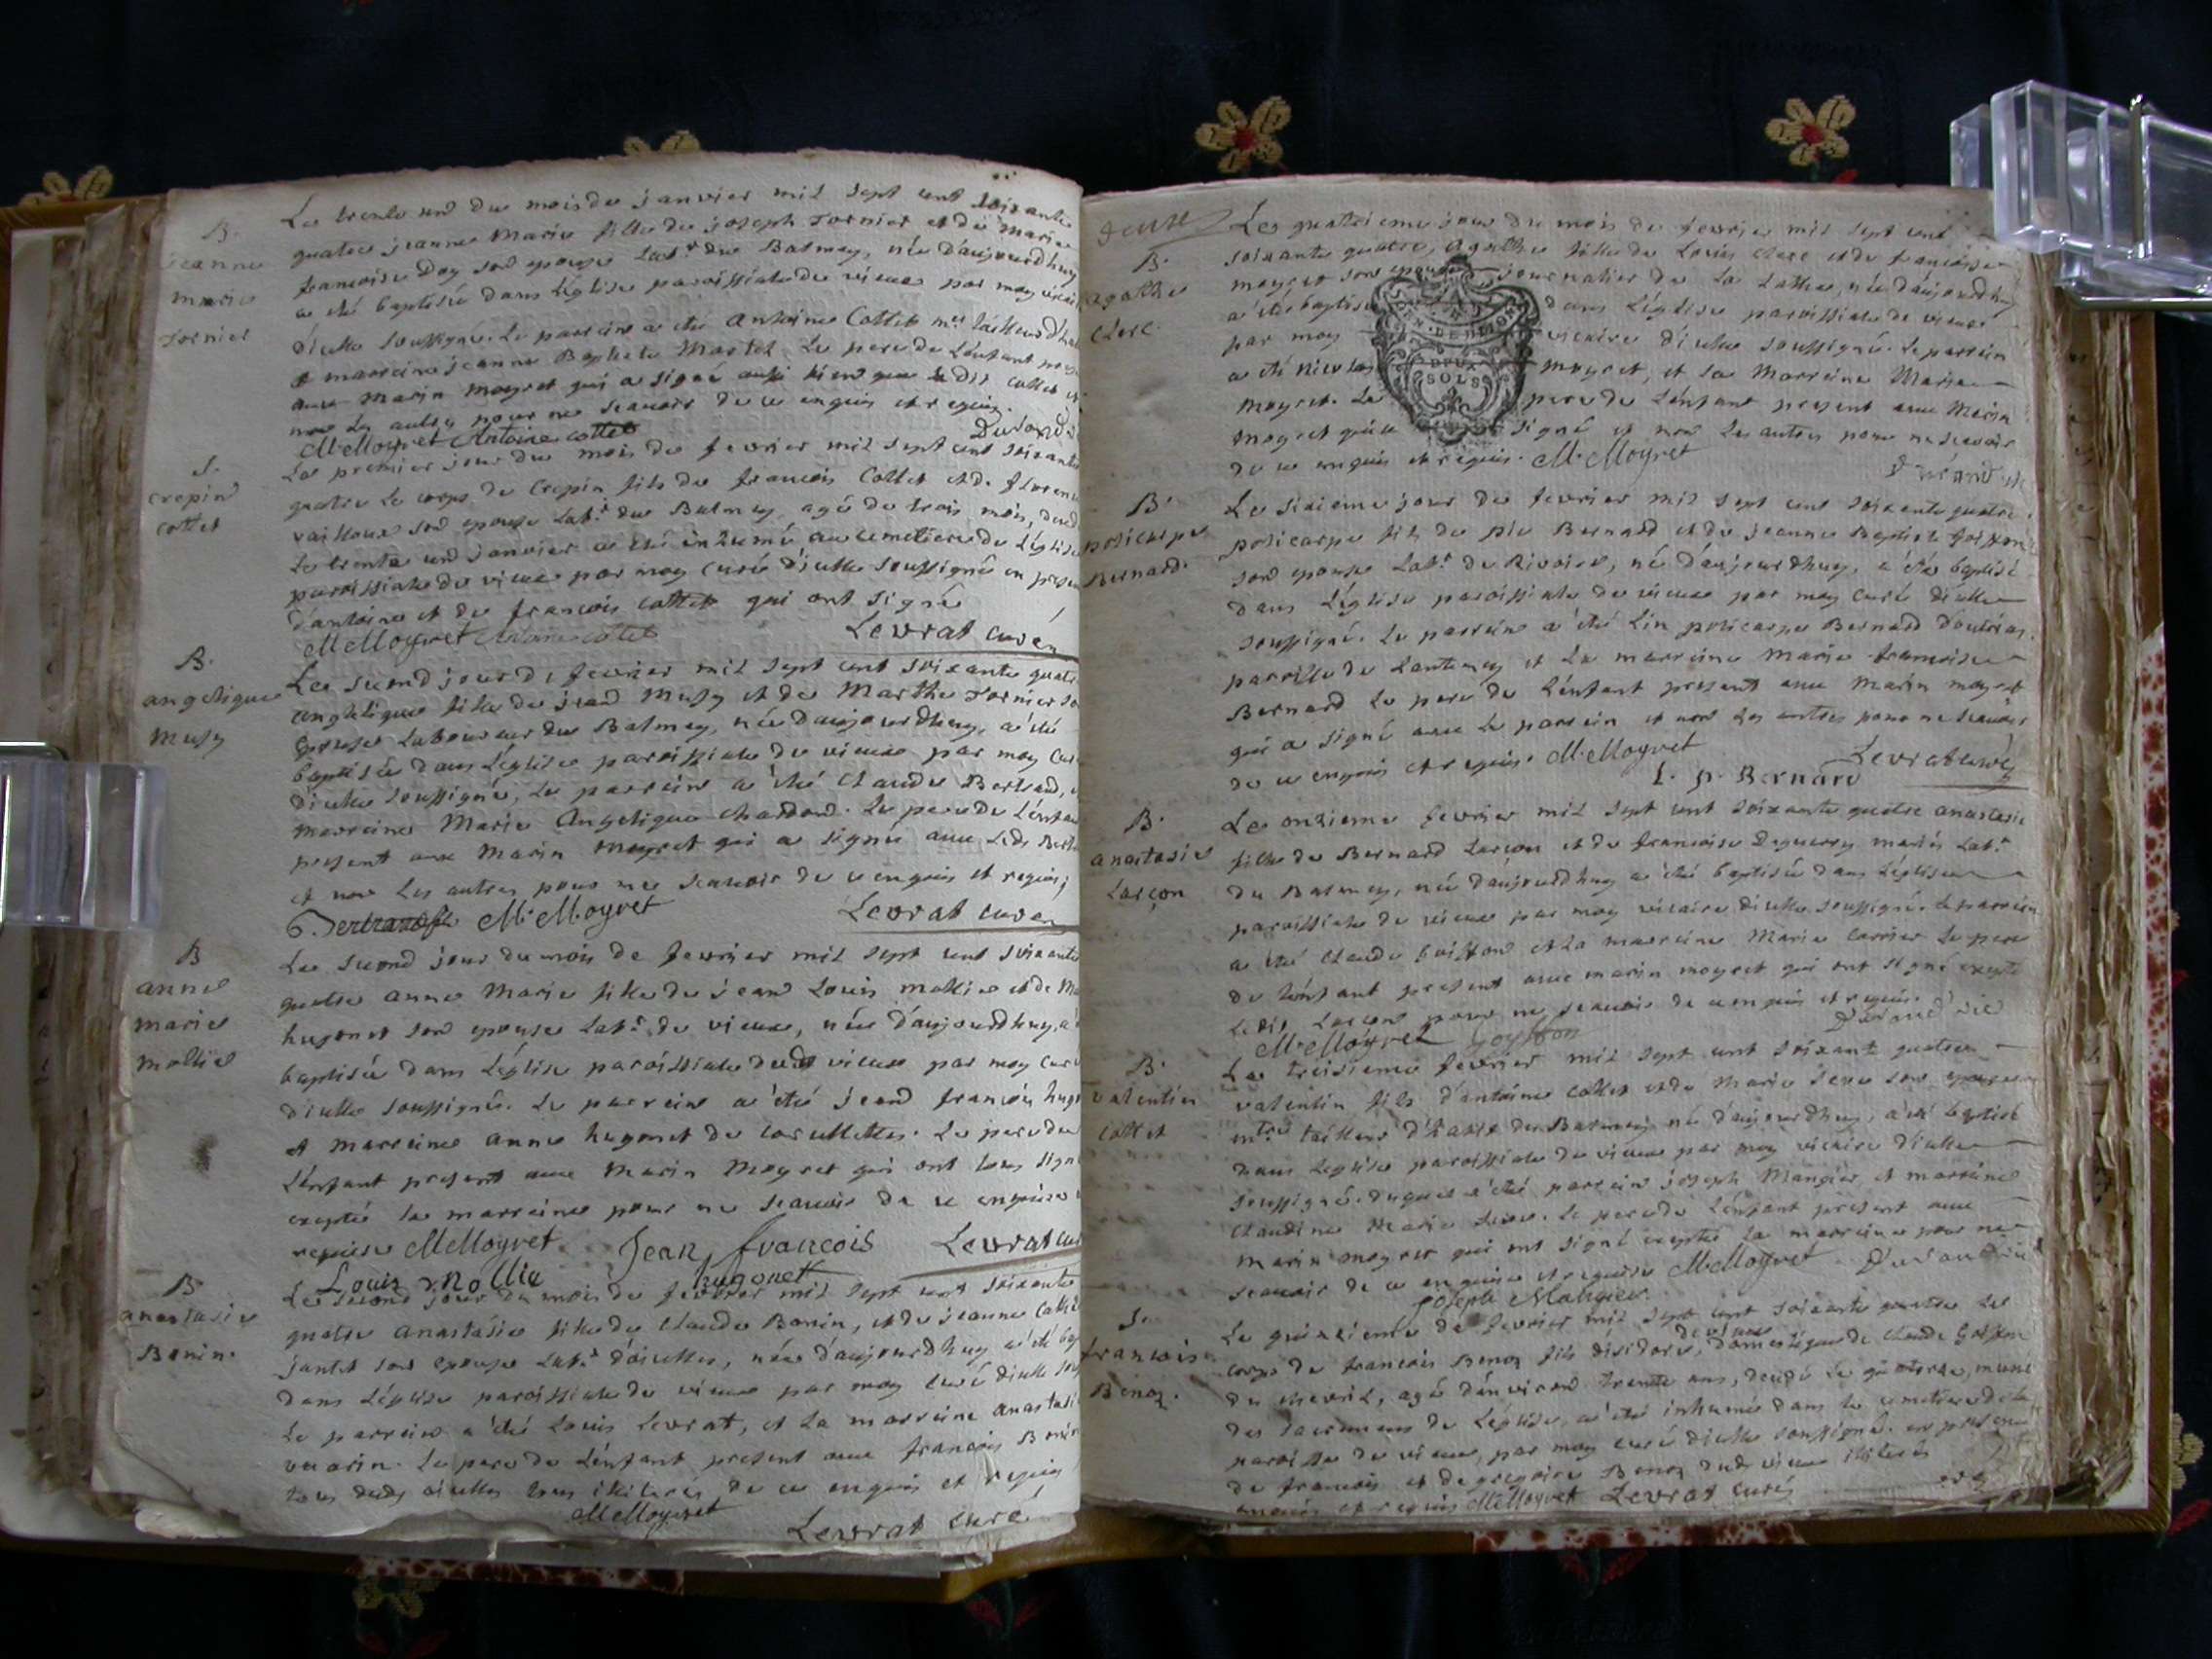 B.
jeanne
marie
tornier
Le trente un du mois de janvier mil sept cent soixante
quatre jeanne Marie fille de joseph Tornier et de Marie
francoise Doy son epouse Labr. du Balmay, née d'aujourdhuy
a eté baptisée dans L'église paroissiale de vieux par moy
d'icelle soussigné. Le parrein a eté Antoine Collet mre tailleur
et marreine jeanne Baptiste Martel. Le pere de L'enfant
avec Marin moyret qui a signé aussi bien que Ledit Collet et
non Les autres pour ne scauoir de ce enquis et requis.
M. Moyret Antoine collet
S.
crepin
collet
Le premier jour du mois de fevrier mil sept cent soixante
quatre Le corps de Crepin fils de francois Collet et de
son epouse Labr. du Balmey agé de trois mois,
Le trente un janvier a eté inhumé au cemetiere de L'église
paroissiale de vieux par moy curé d'icelle soussigné en
d'antoine et de francois collet qui ont signé
M. Moyret Antoine collet Levrat curé
B.
angelique
Musy
Le second jour de fevrier mil sept cent soixante
angelique fille de jean Musy et de Marthe Tornier
epouse Laboureur du Balmey, née d'aujourdhuy, a eté
baptisée dans L'église paroissiale de vieux par moy
d'icelle soussigné, Le parrein a eté Claude Bertrand,
marreine Marie Angelique chardon. Le pere de
present avec Marin Moyret qui a signé avec Ledt
et non Les autres pour ne scauoir de ce enquis et requis,
M. Moyret Levrat curé
B
anne
marie
mollie
Le second jour du mois de fevrier mil sept cent soixante
quatre anne Marie fille de jean Louis mollie et de
hugonet son epouse Labr. de vieux, née d'aujourdhuy, a
baptisée dans L'église paroissiale dudt vieux par moy curé
d'icelle soussigné. Le parrein a eté jean francois
et marreine anne hugonet de Le pere de
L'enfant present avec Marin Moyret qui ont tous
exceptée la marreine pour ne scauoir de ce enquise
requise M. Moyret. Jean francois Levrat
Louis Mollie hugonet
B
anastasie
Bonin.
Le second jour du mois de fevrier mil sept cent soixante
quatre anastasie fille de Claude Bonin, et de jeanne
jantet son epouse Labr. née d'aujourdhuy a eté
dans L'église paroissiale de vieux par moy curé d'icelle
Le parrein a eté Louis Levrat, et La marreine anastasie
Le pere de L'enfant present avec francois
tous illiterés de ce enquis et requis
M. Moyret Levrat curé
B.
agathe
Clerc.
Le quatrieme jour du mois de fevrier mil sept cent
soixante quatre, agathe fille de Louis Clerc et de francoise
moyret son epouse journalier de La née d'aujourdhuy
a eté baptisée dans L'église paroissiale de vieux
par moy vicaire d'icelle soussigné. Le parrein
a eté nicolas moyret, et La Marreine Marie
Moyret. Le pere de L'enfant present avec Marin
moyret qui a signé et non Les autres pour ne scavoir
de ce enquis et requis. M. Moyret
DEUX
SOLS
B.
policarpe
Bernard.
Le sixieme jour de fevrier mil sept cent soixante quatre
policarpe fils de pie Bernard et de jeanne Baptiste
son epouse Labr. de Rivoire, né d'aujourdhuy, a eté baptisé
dans L'église paroissiale de vieux par moy curé d'icelle
soussigné. Le parrein a eté Lin policarpe Bernard
parroisse de Lantenay et La marreine Marie francoise
Bernard Le pere de L'enfant present avec Marin moyret
qui a signé avec Le parrein et non Les autres pour ne scauoir
de ce enquis et requis. M. Moyret Levrat curé
L. p. Bernard
B.
anastasie
Larçon
Le onzieme fevrier mil sept cent soixante quatre anastasie
fille de Bernard Larçon et de francoise mariés Labr.
du Balmey, née d'aujourdhuy a eté baptisée dans L'église
paroissiale de vieux par moy vicaire d'icelle soussigné. Le parrein
a eté Claude Goiffon et La marreine Marie Carrier Le pere
de L'enfant present avec marin moyret qui ont signé excepté
Ledit Larçon pour ne scauoir de ce enquis et requis.
M. Moyret Goyffon
B.
valentin
Collet
Le treisieme fevrier mil sept cent soixante quatre
valentin fils d'antoine Collet et de Marie son epouse
mtre tailleur d'habit du Balmey né d'aujourdhuy, a eté baptisé
dans L'église paroissiale de vieux par moy vicaire d'icelle
soussigné. duquel a eté parrein joseph Mangier, et marreine
Claudine Marie Le pere de L'enfant present avec
Marin moyret qui ont signé excepté La marreine pour ne
scauoir de ce enquise et requise M. Moyret
Joseph Mangier.
S.
francois
Benoz.
Le quinzieme de fevrier mil sept cent soixante quatre Le
corps de francois Benoz fils d'isidore, de vieux domestique de Claude Goiffon
du chevril, agé d'environ trente ans, decedé Le quatorze, muni
des sacremens de L'église, a eté inhumé dans Le cemetiere de la
paroisse de vieux, par moy curé d'icelle soussigné. en presence
de francois et de gregoire Benoz dudt vieux illiterés
enquis et requis M. Moyret Levrat curé